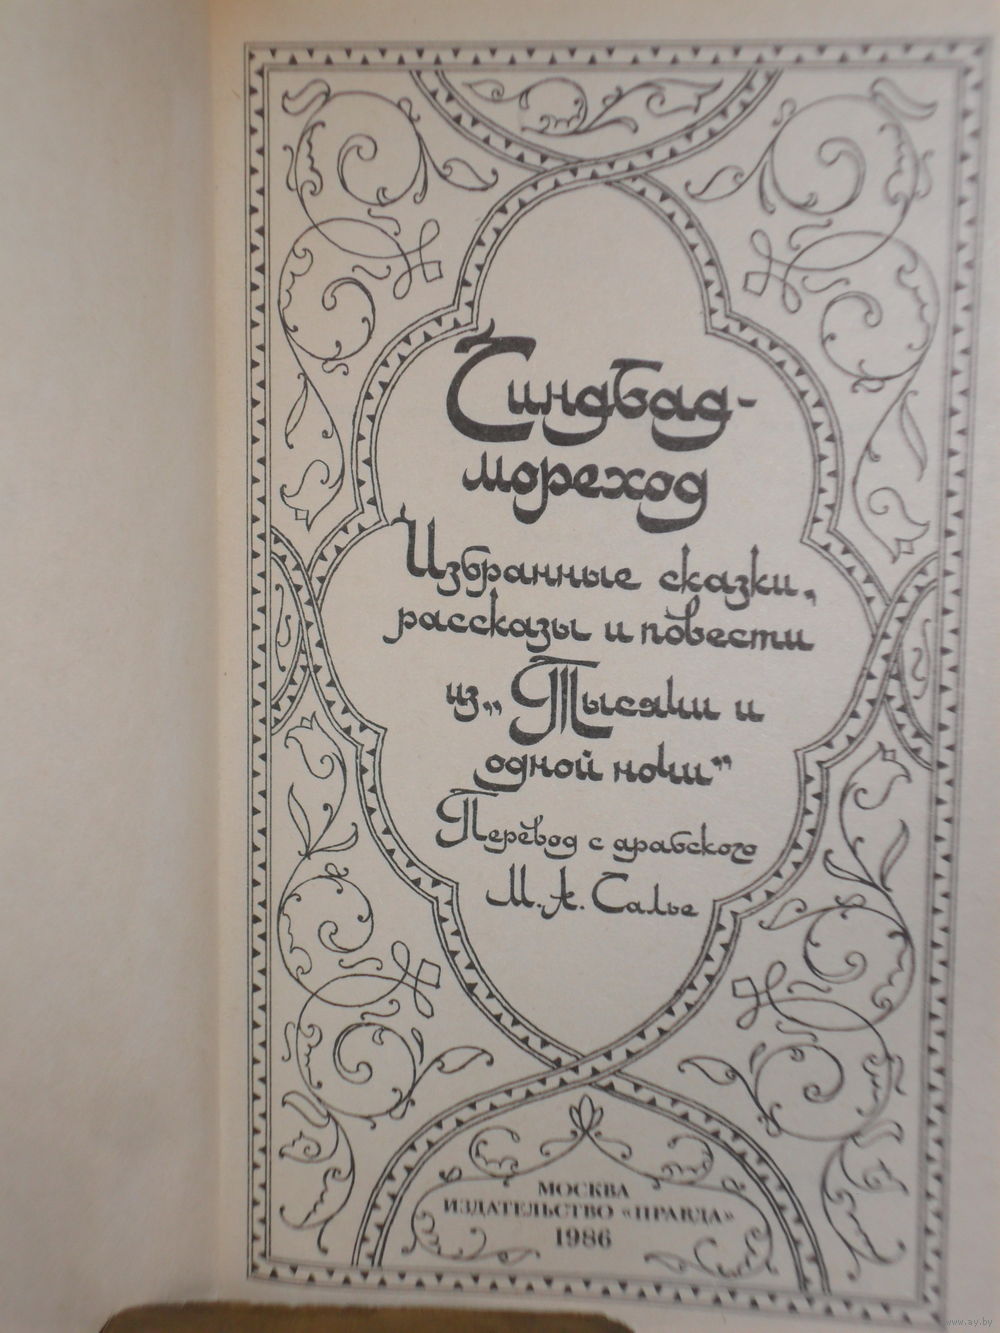 Синдбад-
мореход
Избранные сказки,
рассказы и повести
из „Тысячи и
одной ночи“
Перевод с арабского
М. А. Салье
МОСКВА
ИЗДАТЕЛЬСТВО «ПРАВДА»
1986
www.ay.by